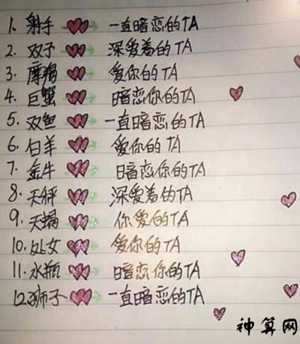 1. 射手 一直暗恋的TA
2. 双子 深爱着的TA
3. 摩羯 爱你的TA
4. 巨蟹 暗恋你的TA
5. 双鱼 一直暗恋的TA
6. 白羊 爱你的TA
7. 金牛 暗恋你的TA
8. 天秤 深爱着的TA
9. 天蝎 你爱的TA
10. 处女 爱你的TA
11. 水瓶 暗恋你的TA
12. 狮子 一直暗恋的TA
神算网